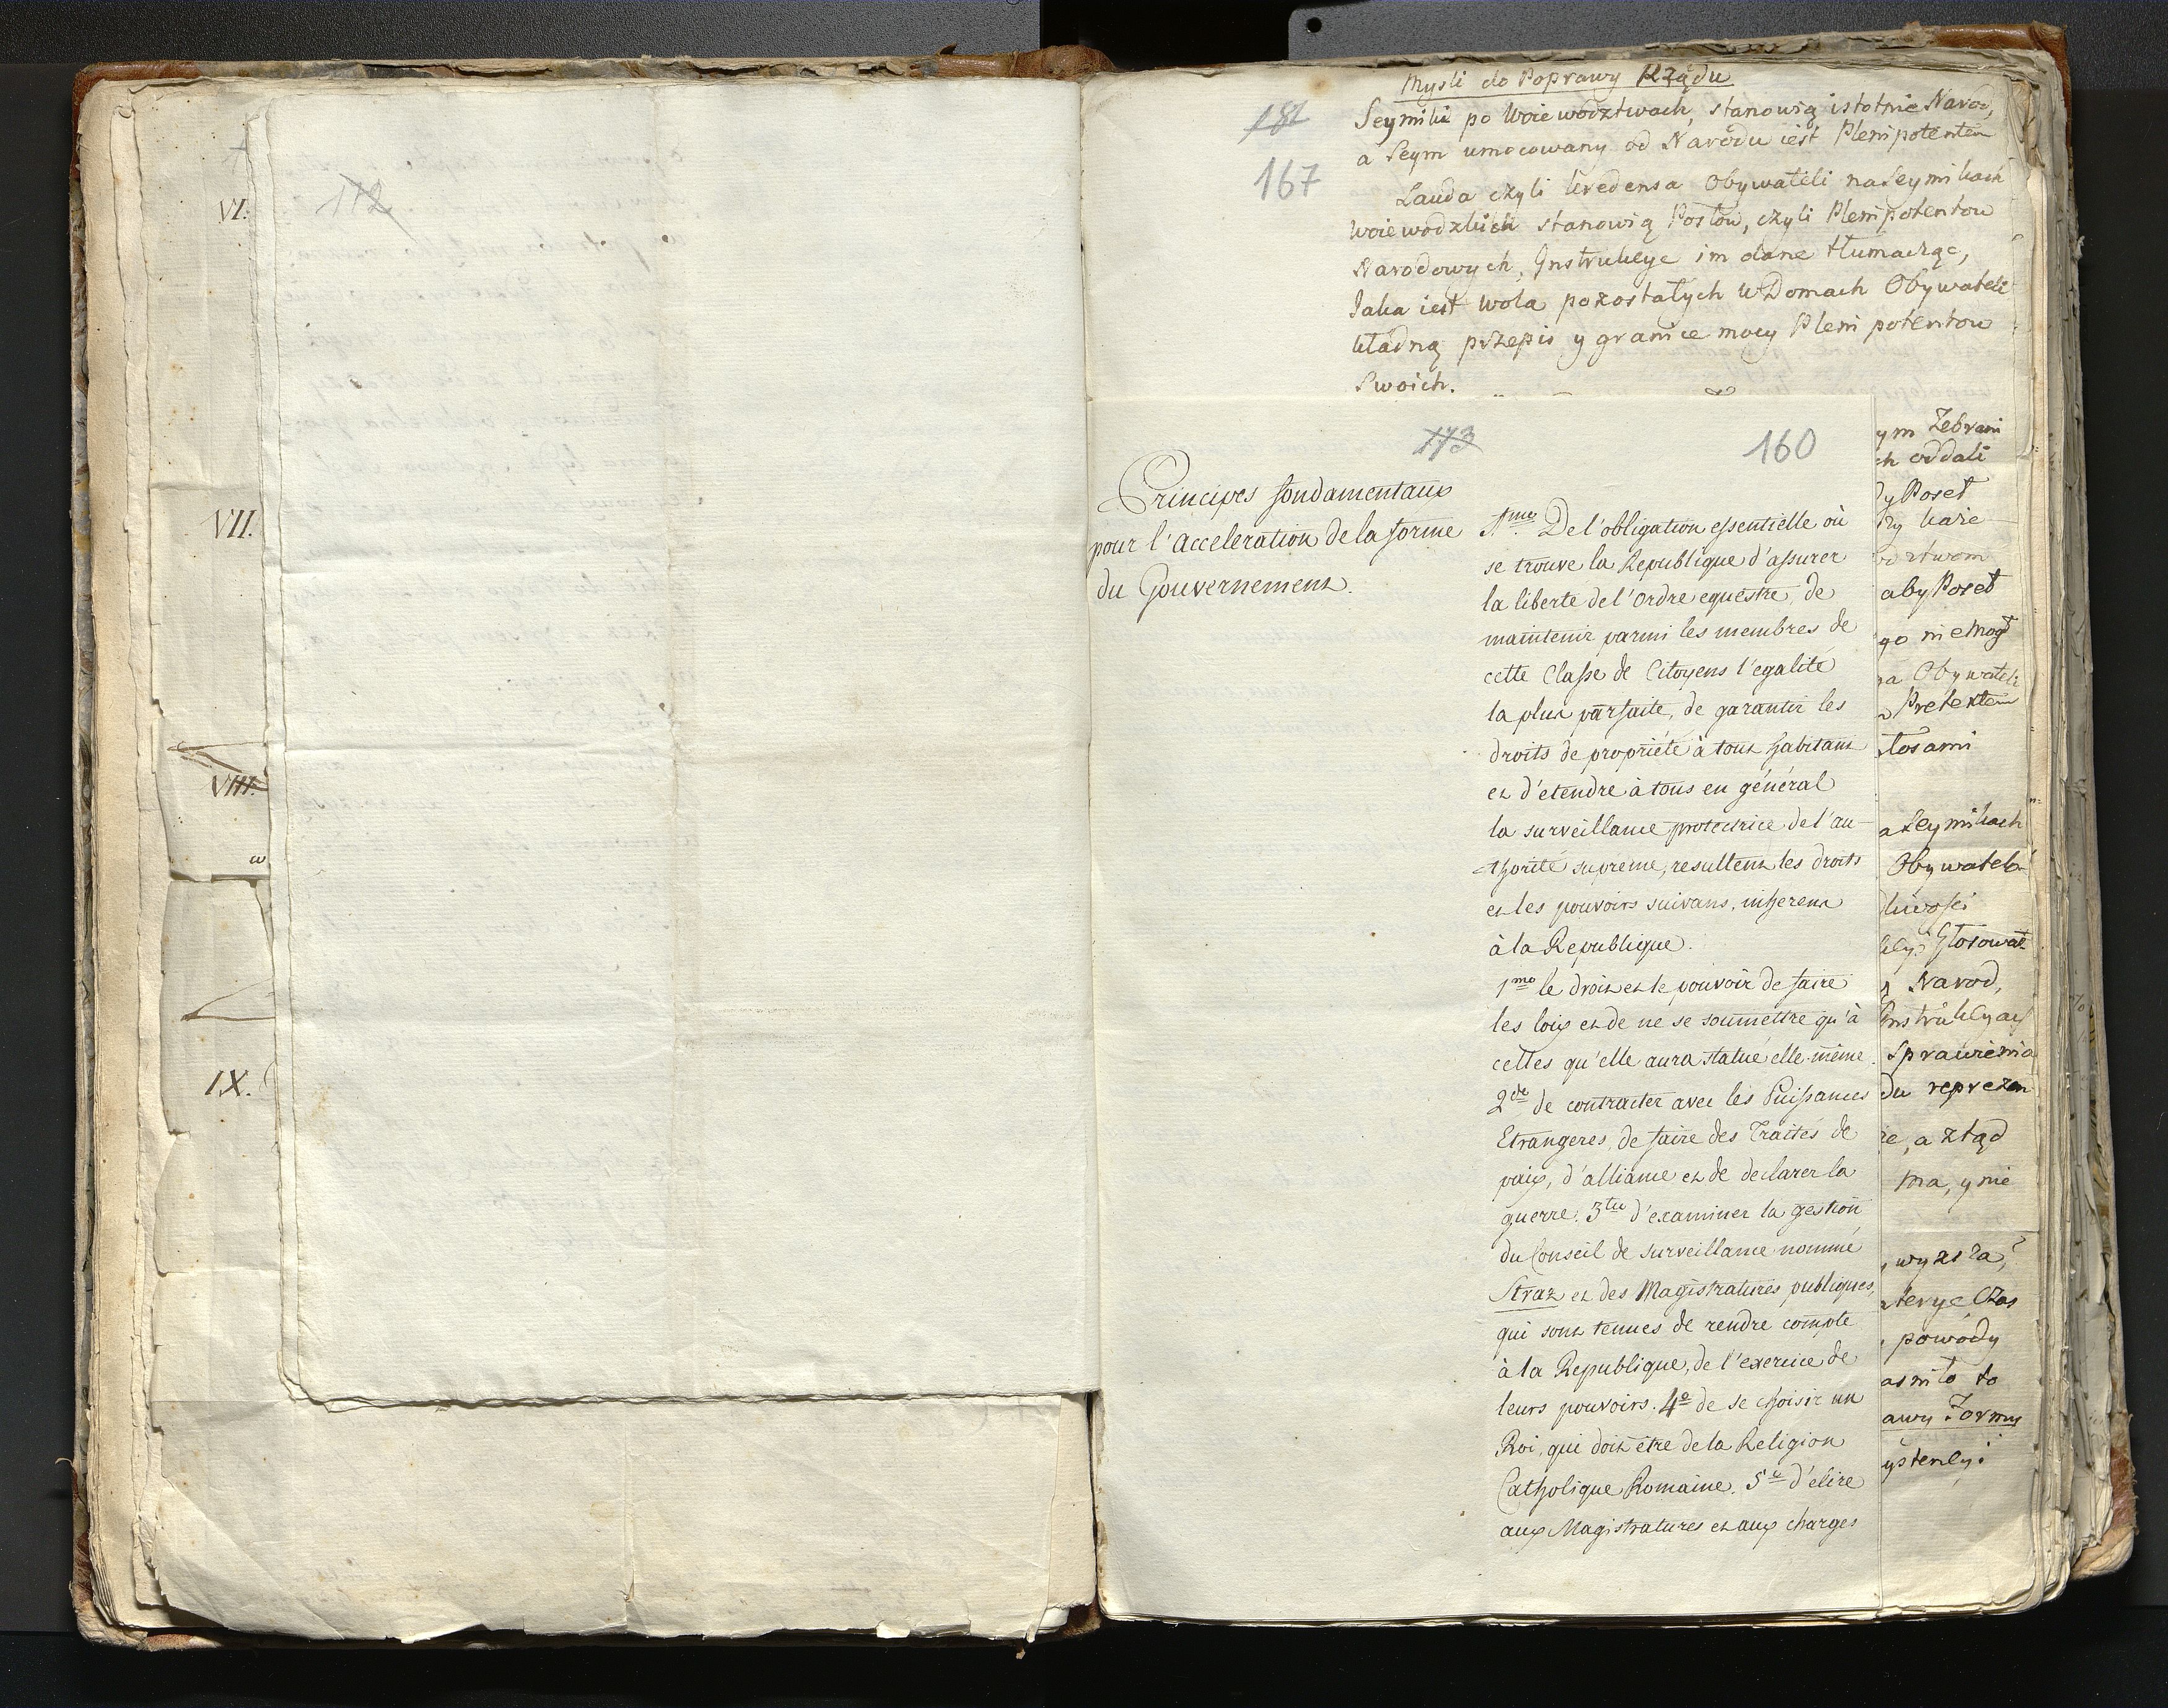 VI.
VII.
VIII.
w
IX.
112
Mysli do Poprawy Rządu
181
167
Seymiki po Woiewodztwach, stanowią istotnie Narod,
a Seym umocowany od Narodu iest Plenipotentem
Lauda czyli kredensa Obywateli na Seymikach
Woiewodzkich stanowią Posłow, czyli Plenipotentow
Narodowych, Instrukcye im dane tłumaczą,
Jaka iest wola pozostałych w Domach Obywateli
kładną przepis y granice mocy Plenipotentow
Swoich.
173
160
Principes fondamentaux
pour l'acceleration de la forme
du Gouvernement.
1mo. De l'obligation essentielle où
se trouve la Republique d'assurer
la liberté de l'ordre equestre, de
maintenir parmi les membres de
cette Classe de Citoyens l'egalité
la plus parfaite, de garantir les
droits de propriété à tous habitans
et d'etendre à tous en général
la surveillance protectrice de l'au-
thorité supreme, resultent les droits
et les pouvoirs suivans, inherens
à la Republique.
1mo le droit et le pouvoir de faire
les loix et de ne se soumettre qu'à
celles qu'elle aura statué elle-même.
2do de contracter avec les Puissances
Etrangeres, de faire des Traités de
paix, d'alliance et de declarer la
guerre. 3tio d'examiner la gestion
du Conseil de surveillance nommé
Straz et des Magistratures publiques,
qui sont tenues de rendre compte
à la Republique, de l'exercice de
leurs pouvoirs. 4o de se choisir un
Roi, qui doit être de la Religion
Catholique Romaine. 5o d'elire
aux Magistratures et aux charges
ym Zebrani
ch oddali
y Poseł
aby Poseł
go nie mogł
a Obywateli
Pretextem
łosami
a Seymikach
Obywatel
Głosowa
Narod,
Instrukcyach
Sprawienia
du reprezen
re, a ztąd
ma, y nie
wyzsza,
terye Czas
powody
asniło to
awy Formy